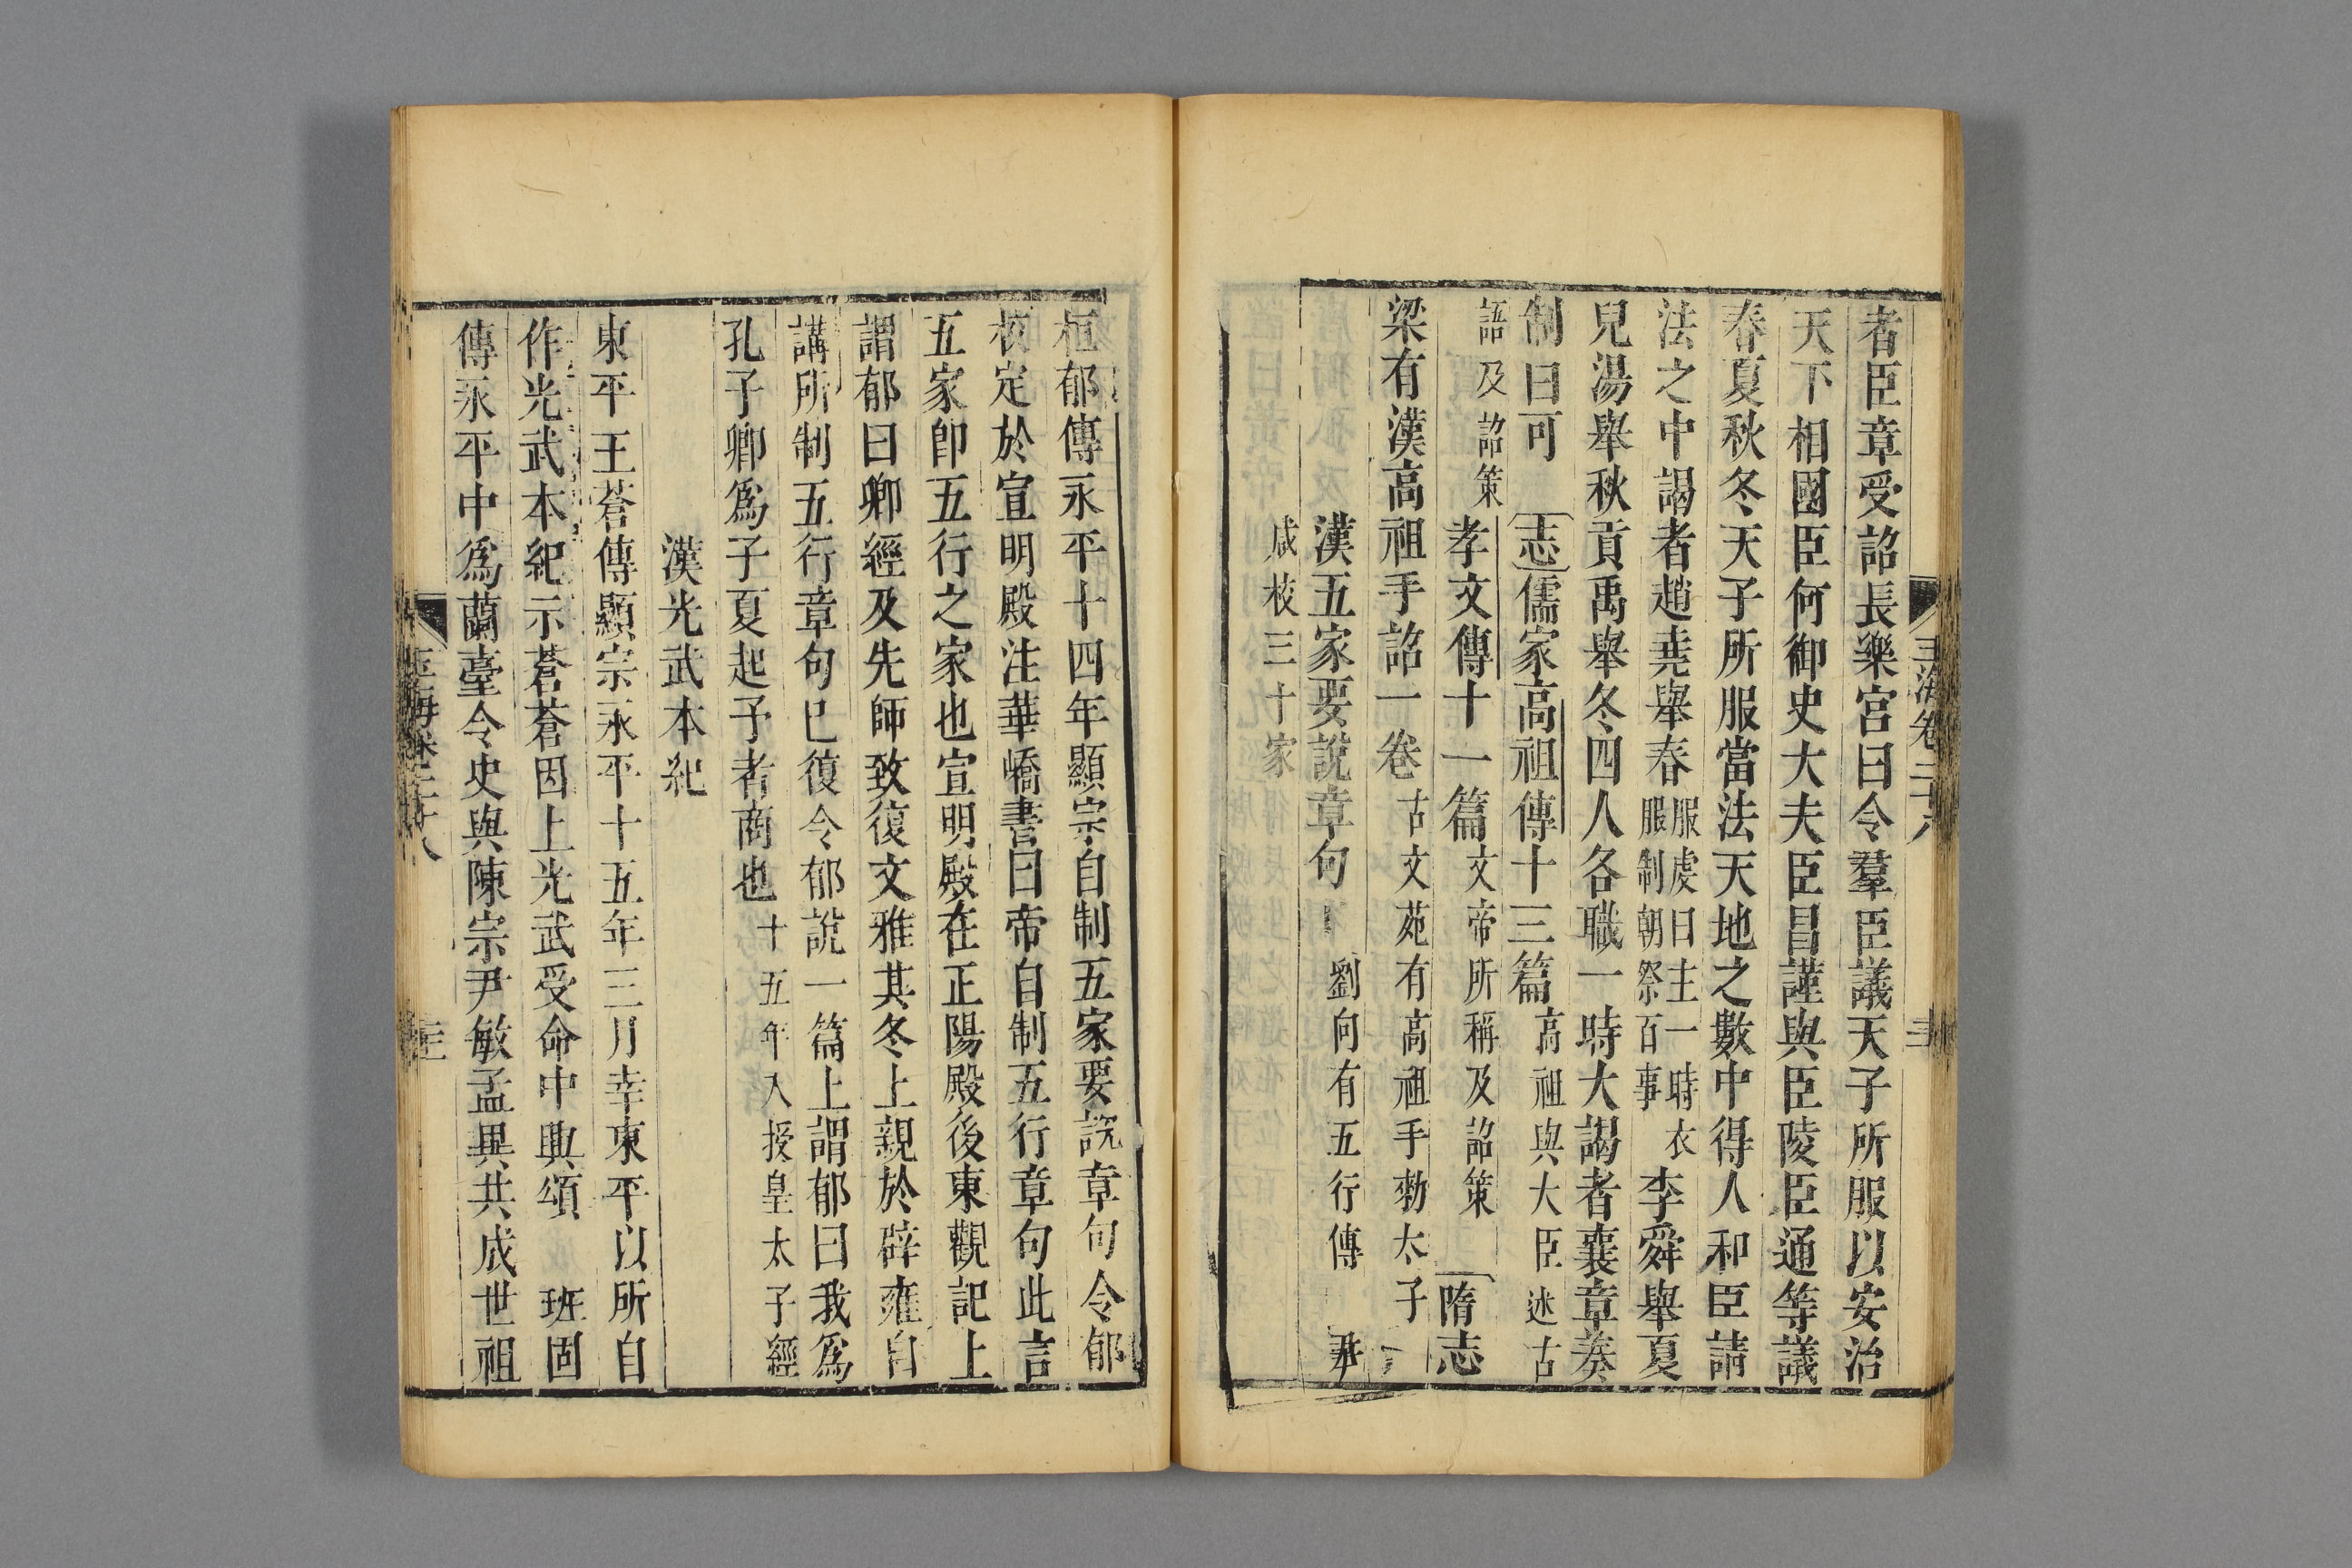 者臣章受詔長樂宮曰令羣臣議天子所服以安治
天下相國臣何御史大夫臣昌謹與臣陵臣通等議
春夏秋冬天子所服當法天地之數中得人和臣請
法之中謁者趙堯舉春服虔曰主一時衣服制朝祭百事李舜舉夏
兒湯舉秋貢禹舉冬四人各職一時大謁者襄章奏
制曰可志儒家高祖傳十三篇高祖與大臣述古
語及詔策孝文傳十一篇文帝所稱及詔策隋志
梁有漢高祖手詔一卷古文苑有高祖手勑太子
漢五家要說章句劉向有五行傳尹
咸校三十家
桓郁傳永平十四年顯宗自制五家要說章句令郁
校定於宣明殿注華嶠書曰帝自制五行章句此言
五家卽五行之家也宣明殿在正陽殿後東觀記上
謂郁曰卿經及先師致復文雅其冬上親於辟雍自
講所制五行章句已復令郁說一篇上謂郁曰我爲
孔子卿爲子夏起予者商也十五年入授皇太子經
漢光武本紀
東平王蒼傳顯宗永平十五年三月幸東平以所自
作光武本紀示蒼蒼因上光武受命中興頌班固
傳永平中爲蘭臺令史與陳宗尹敏孟異共成世祖
玉海卷二十八